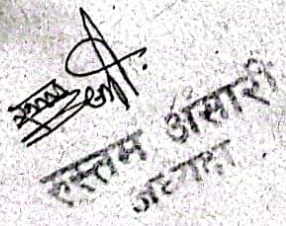 रुस्तम अंसारी
अध्यक्ष